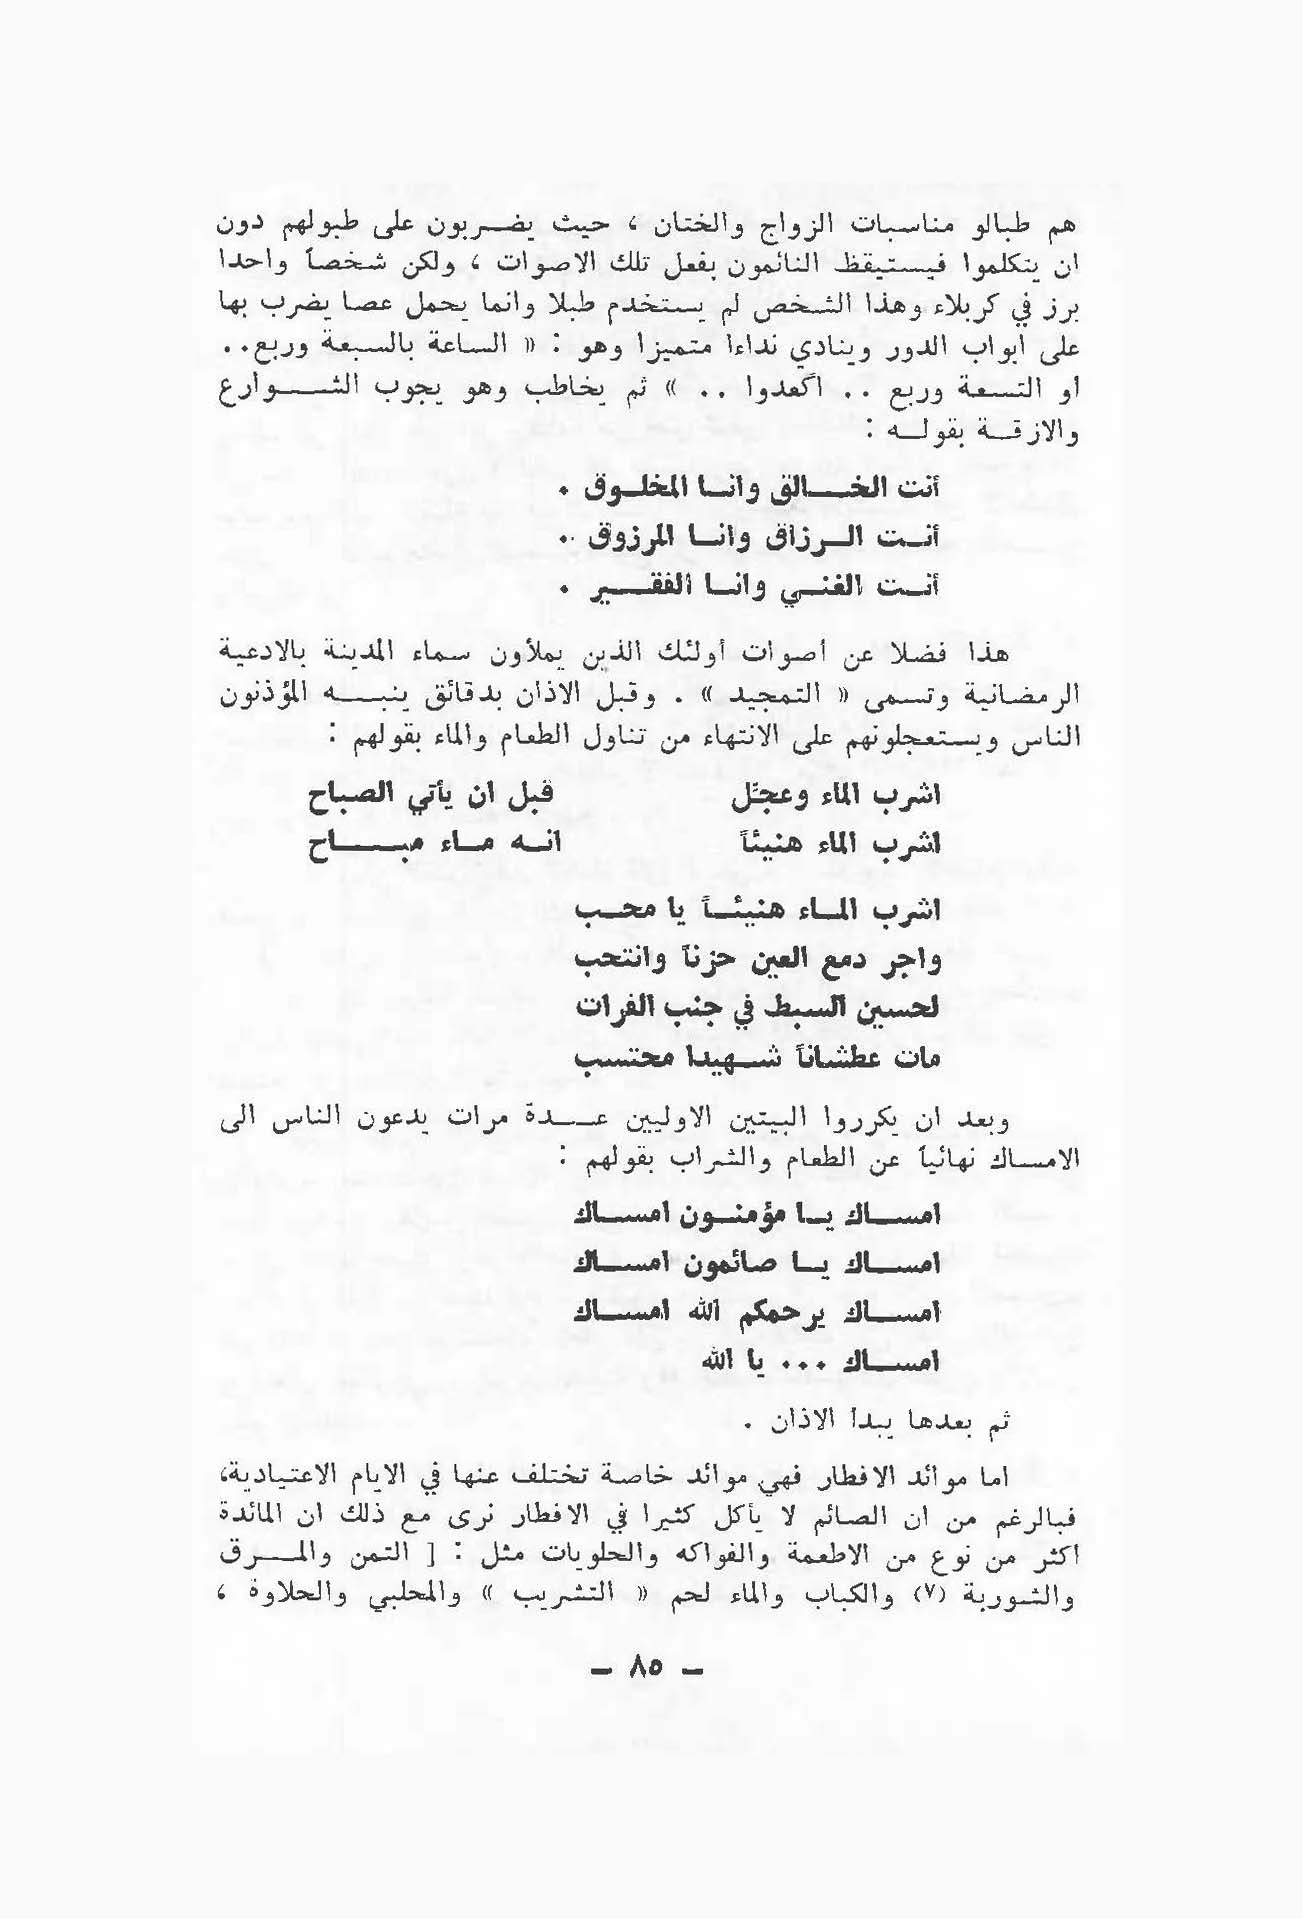 هم طبالو مناسبات الزواج والختان ، حيث يضربون على طبولهم دون
ان يتكلموا فيستيقظ النائمون بفعل تلك الاصوات ، ولكن شخصاً واحدا
برز في كربلاء وهذا الشخص لم يستخدم طبلا وانما يحمل عصا يضرب بها
على ابواب الدور وينادي نداءا متميزا وهو : « الساعة بالسبعة وربع..
او التسعة وربع .. اگعدوا .. » ثم يخاطب وهو يجوب الشوارع
والازقة بقوله :
أنت الخالق وانا المخلوق .
أنت الرزاق وانا المرزوق .
أنت الغني وانا الفقير .
هذا فضلا عن اصوات اولئك الذين يملأون سماء المدينة بالادعية
الرمضانية وتسمى « التمجيد » . وقبل الاذان بدقائق ينبه المؤذنون
الناس ويستعجلونهم على الانتهاء من تناول الطعام والماء بقولهم :
اشرب الماء وعجّل قبل ان يأتي الصباح
اشرب الماء هنيئاً انه ماء مباح
اشرب الماء هنيئاً يا محب
واجر دمع العين حزناً وانتحب
لحسين السبط في جنب الفرات
مات عطشاناً شهيدا محتسب
وبعد ان يكرروا البيتين الاوليين عدة مرات يدعون الناس الى
الامساك نهائياً عن الطعام والشراب بقولهم :
امساك يا مؤمنون امساك
امساك يا صائمون امساك
امساك يرحمكم الله امساك
امساك ... يا الله
ثم بعدها يبدأ الاذان .
اما موائد الافطار فهي موائد خاصة تختلف عنها في الايام الاعتيادية،
فبالرغم من ان الصائم لا يأكل كثيرا في الافطار نرى مع ذلك ان المائدة
اكثر من نوع من الاطعمة والفواكه والحلويات مثل : [ التمن والمرق
والشوربة (٧) والكباب والماء لحم « التشريب » والمحلبي والحلاوة ،
– ٨٥ –